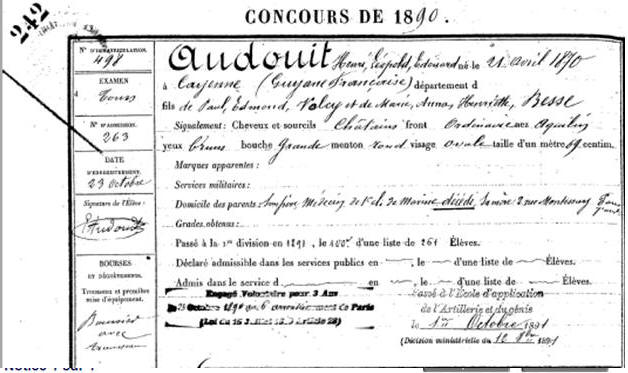 CONCOURS DE 1890.
242
N° D'IMMATRICULATION.
498
EXAMEN
à Tours
N° D'ADMISSION.
263
DATE
D'ENREGISTREMENT.
23 octobre
Signature de l'Élève :
EAudouit
BOURSES
ET DÉGRÈVEMENTS.
Trousseau et première
mise d'équipement.
Boursier
avec
trousseau
Audouit Henri, Léopold, Edouard né le 21 avril 1870
à Cayenne (Guyane Française) département d
fils de Paul, Edmond, Volcy et de Marie, Anna, Henriette, Besse
Signalement : Cheveux et sourcils Châtains front Ordinaire nez Aquilin
yeux bruns bouche Grande menton rond visage ovale taille d'un mètre 69 centim.
Marques apparentes :
Services militaires :
Domicile des parents : Son père, Médecin de 1e cl. de Marine décédé, Sa mère 2 rue
Grades obtenus :
Passé à la 1re division en 1891, le d'une liste de 261 Élèves.
Déclaré admissible dans les services publics en , le d'une liste de Élèves.
Admis dans le service d en , le d'une liste de Élèves.
Engagé Volontaire pour 3 Ans
le 23 Octobre 1890 au arrondissement de Paris
(Loi du 15 Article 28)
Passé à l'École d'application
de l'Artillerie et du génie
le 1er Octobre 1891
(Décision ministérielle du 12 1891
Notice 1 sur 1